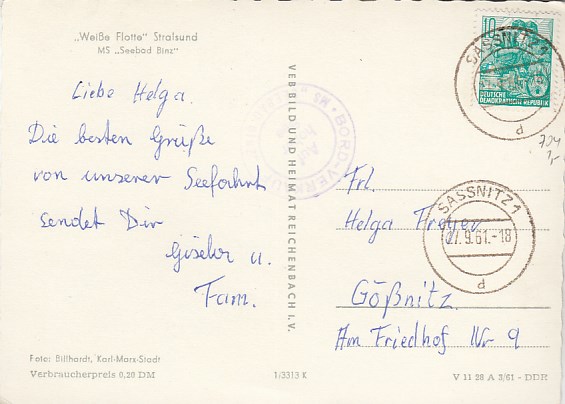 „Weiße Flotte" Stralsund
MS „Seebad Binz"
Liebe Helga.
Die besten Grüße
von unserer Seefahrt
sendet Dir
Gisela u.
Fam.
Foto: Billhardt, Karl-Marx-Stadt
Verbraucherpreis 0,20 DM
VEB BILD UND HEIMAT REICHENBACH I. V.
1/3313 K
10
DEUTSCHE
DEMOKRATISCHE REPUBLIK
SASSNITZ 1
d
MS
BORD-VERKAUF
704
1,-
Frl.
Helga Freyer
SASSNITZ 1
27.9.61.-18
d
Gößnitz.
Am Friedhof Nr 9
V 11 28 A 3/61 - DDR